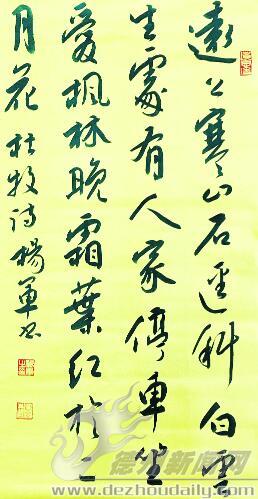 遠上寒山石逕斜白雲
生處有人家停車坐
愛楓林晚霜葉紅於二
月花 杜牧詩 楊軍書
德州新闻网
www.dezhoudaily.com